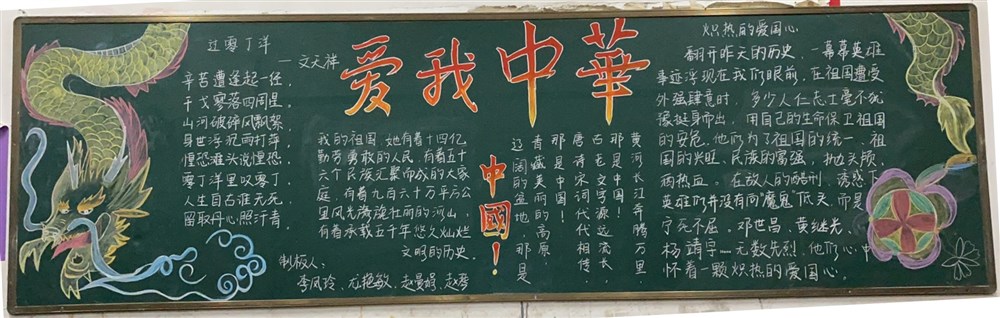 爱我中華
过零丁洋
— 文天祥
辛苦遭逢起一经,
干戈寥落四周星。
山河破碎风飘絮,
身世浮沉雨打萍。
惶恐滩头说惶恐,
零丁洋里叹零丁,
人生自古谁无死,
留取丹心照汗青。
我的祖国,她有着十四亿
勤劳勇敢的人民,有着五十
六个民族汇聚而成的大家
庭,有着九百六十万平方公
里风光旖旎壮丽的河山,
有着承载五千年悠久灿烂
文明的历史。
中國!
黄河长江奔腾万里
那是中国!
古老文字源远流长,
唐诗宋词代代相传,
那是中国!
香蕴美丽的高原,
辽阔的圣地,那是
制板人:
李凤玲、亢艳敏、赵曼娟、赵琴
炽热的爱国心
翻开昨天的历史,一幕幕英雄
事迹浮现在我们眼前,在祖国遭受
外强肆意时,多少人仁志士毫不犹
豫挺身而出,用自己的生命保卫祖国
的安危,他们为了祖国的统一、祖
国的兴旺、民族的富强,抛头颅、
洒热血。在敌人的酷刑、诱惑下,
英雄们并没有向魔鬼低头,而是
宁死不屈。邓世昌、黄继光、
杨靖宇……无数先烈,他们心中
怀着一颗炽热的爱国心。